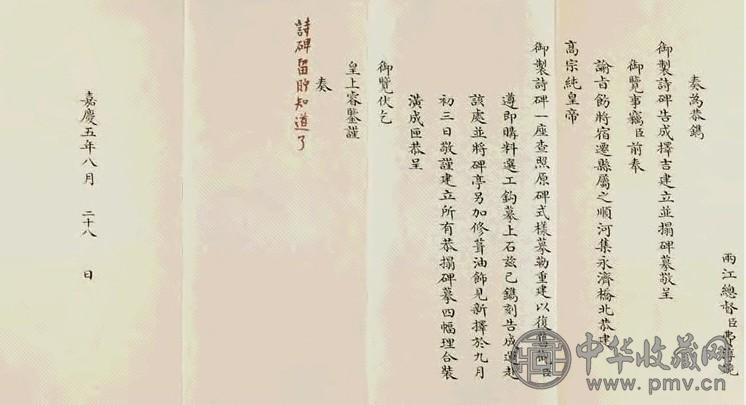 兩江總督臣費淳跪
奏為恭鐫
御製詩碑告成擇吉建立並搨碑摹敬呈
御覽事竊臣前奉
諭旨飭將宿遷縣屬之順河集永濟橋北恭建
高宗純皇帝
御製詩碑一座查照原碑式樣摹勒重建以復舊臣
遵即購料選工鈎摹上石茲已鐫刻告成運赴
該處並將碑亭另加修葺油飾見新擇於九月
初三日敬謹建立所有恭搨碑摹四幅理合裝
潢成匣恭呈
御覽伏乞
皇上睿鑒謹
奏
詩碑留貯知道了
嘉慶五年八月 二十八 日
中华收藏网
www.pmv.cn